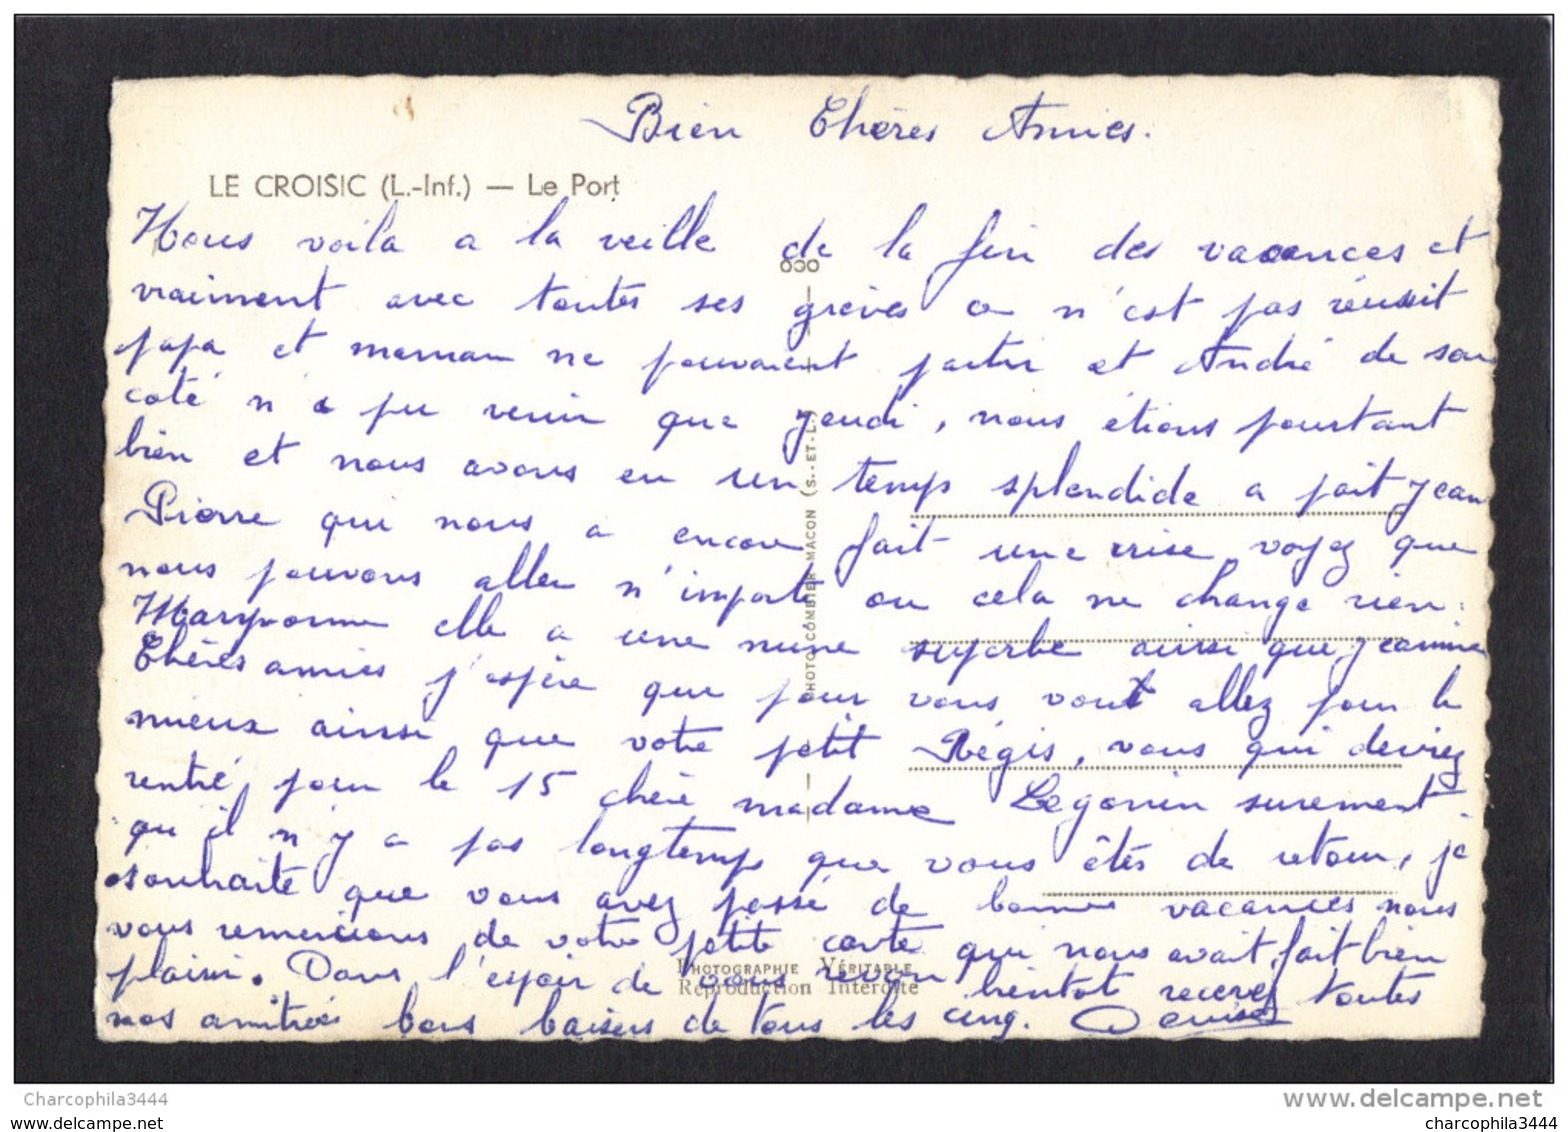 Bien Chères Amies.
LE CROISIC (L.-Inf.) — Le Port
Nous voila a la veille de la fin des vacances et
vraiment avec toutes ses grèves ça n'est pas réussit
papa et maman ne pouvaient partir et André de son
coté n'a pu venir que jeudi, nous étions pourtant
bien et nous avons eu un temps splendide a part Jean
Pierre qui nous a encore fait une crise voyez que
nous pouvons aller n'importe ou cela ne change rien.
Maryvonne elle a une mine superbe ainsi que Jeannine
Chères amies j'espère que pour vous vout allez pour le
mieux ainsi que votre petit Régis, vous qui deviez
rentré pour le 15 chère madame Legonin surement
qu'il n'y a pas longtemps que vous êtes de retour, je
souhaite que vous avez passé de bonnes vacances nous
vous remercions de votre petite carte qui nous avait fait bien
plaisir. Dans l'espoir de vous revoir bientot recevez toutes
nos amitiés bons baisers de tous les cinq. Denise
PHOTO COMBIER MACON (S.-ET-L.)
PHOTOGRAPHIE VÉRITABLE
Reproduction Interdite
Charcophila3444
www.delcampe.net
charcophila3444
charcophila3444